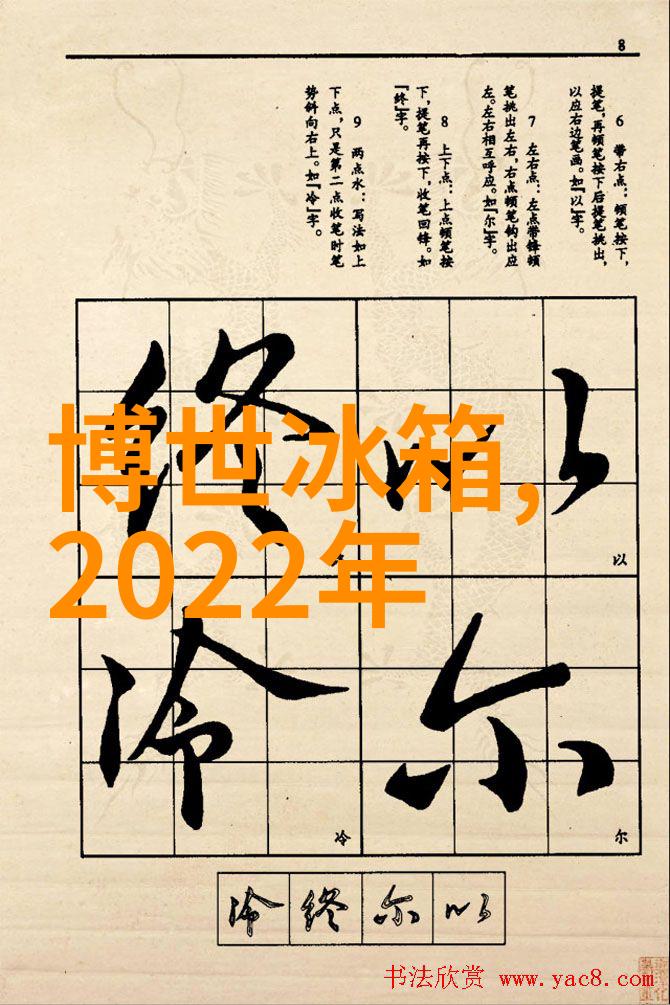 8
6 带右点：顿笔按下，
提笔，再顿笔按下后提笔挑出，
以应右边笔画。如『以』字。
7 左右点：左点带锋顿
笔挑出左右，右点顿笔钩出应
左。左右相互呼应。如『尔』字。
8 上下点：上点顿笔按
下，提笔再按下，收笔回锋。如
『终』字。
9 两点水：写法如上
下点，只是第二点收笔时笔
势斜向右上。如『冷』字。
以
终
以
尔
冷
尔
冷
博世冰箱，
2022年
冷 终 尔 以
书法欣赏 www.yac8.com